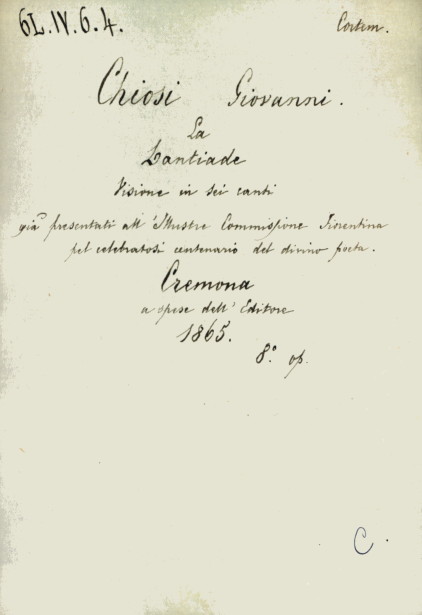 6L.IV.6.4.
Chiosi Giovanni.
La
Dantiade
Visione in sei canti
già presentati all' Illustre Commissione Fiorentina
pel celebratosi centenario del divino poeta.
Cremona
a spese dell' Editore
1865.
8.° op.
C